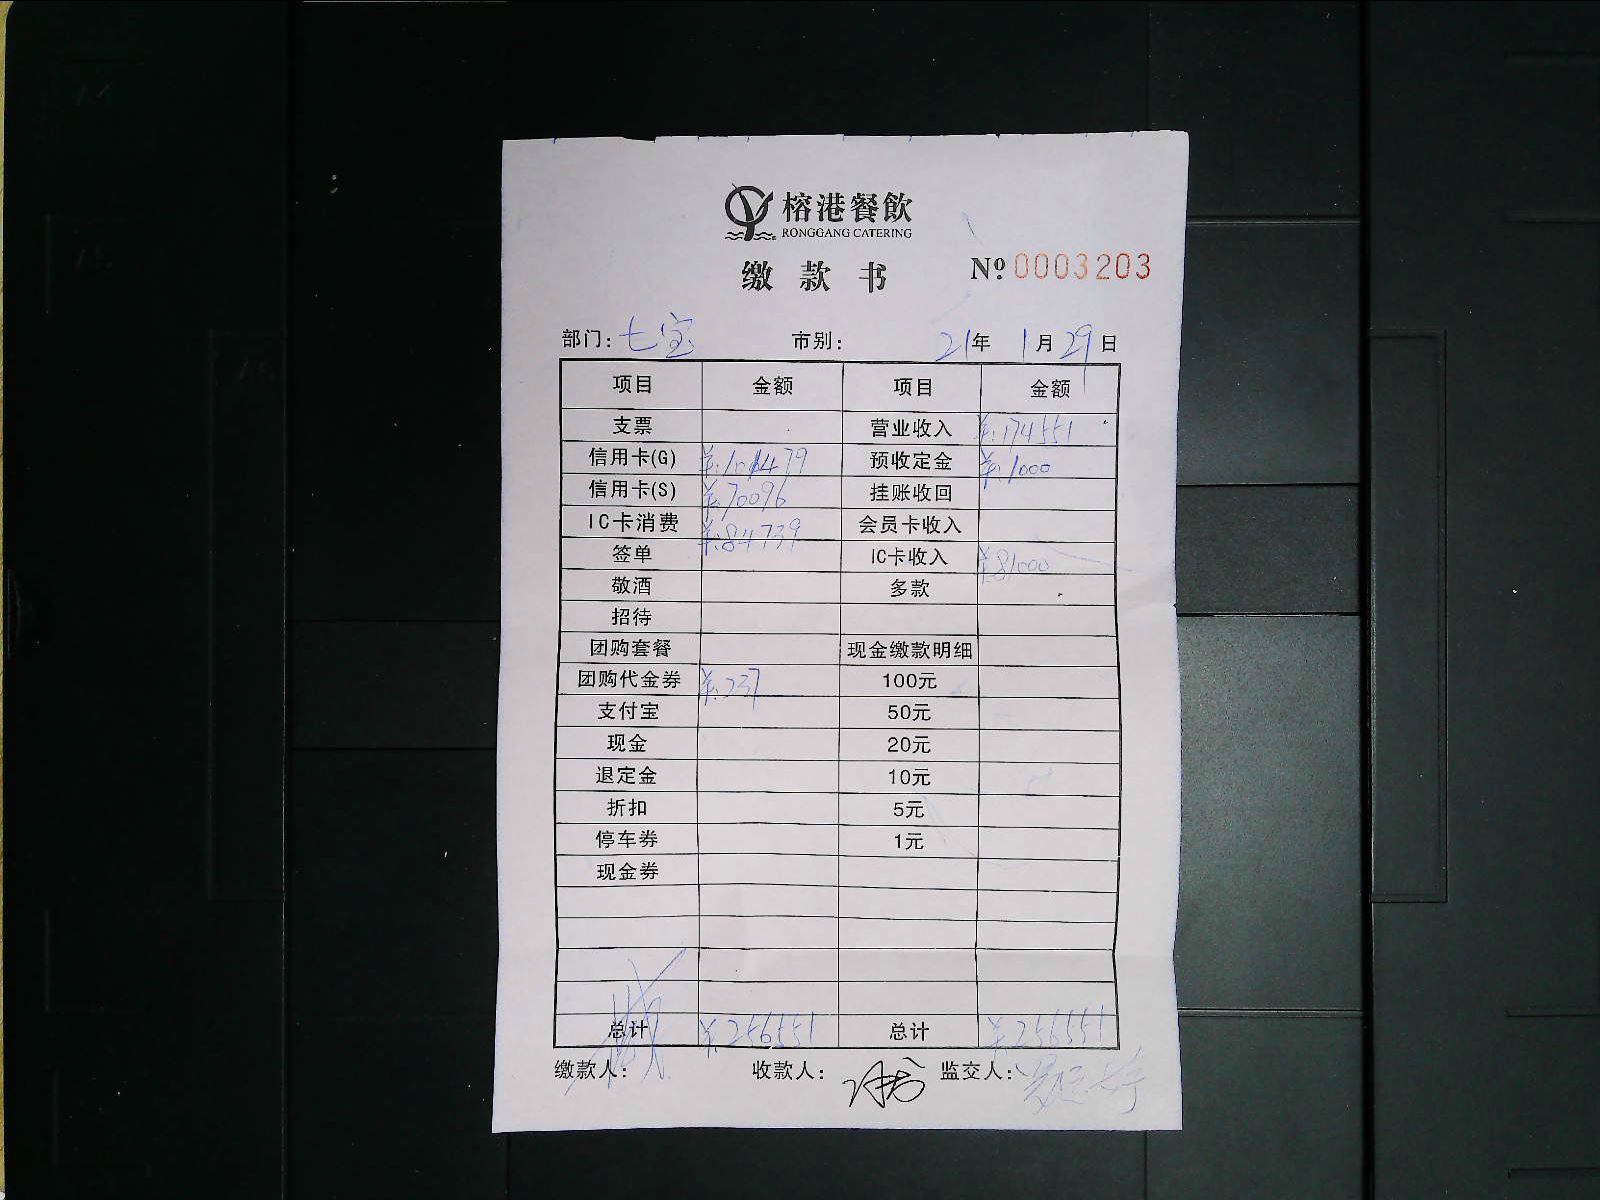 榕港餐飲
RONGGANG CATERING
缴款书 Nº 0003203
部门：七宝 市别： 21年 1月29日
项目 金额 项目 金额
支票 营业收入 ¥:174551
信用卡(G) ¥:101479 预收定金 ¥:1000
信用卡(S) ¥:70096 挂账收回
IC卡消费 ¥:84739 会员卡收入
签单 IC卡收入 ¥81000
敬酒 多款
招待
团购套餐 现金缴款明细
团购代金券 ¥:237 100元
支付宝 50元
现金 20元
退定金 10元
折扣 5元
停车券 1元
现金券
总计 ¥:256551 总计 ¥:256551
缴款人： 收款人： 监交人：